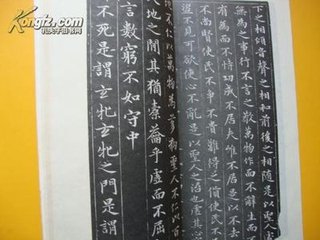 下之相傾音聲之相和前後之相隨是以聖人處
無為之事行不言之教萬物作而不辭生而
為而不恃功成不居夫唯不居是以不去
不尚賢使民不爭不貴難得之貨使民不
盜不見可欲使心不亂是以聖人之治也虛其心
不仁以萬物為芻狗聖人不仁以百
地之間其猶橐籥乎虛而不屈
言數窮不如守中
不死是謂玄牝玄牝之門是謂